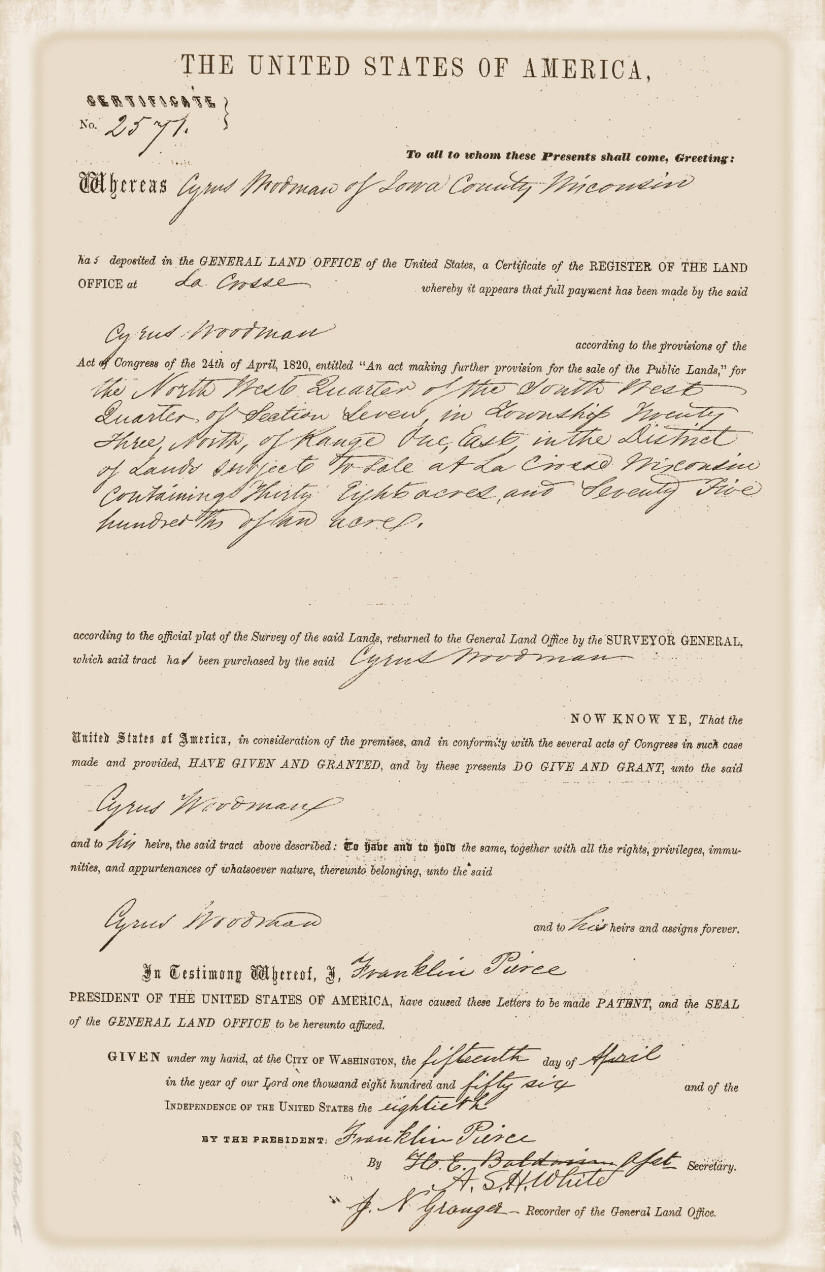 THE UNITED STATES OF AMERICA,
CERTIFICATE
No. 2571.
To all to whom these Presents shall come, Greeting:
Whereas Cyrus Woodman of Iowa County, Wisconsin
has deposited in the GENERAL LAND OFFICE of the United States, a Certificate of the REGISTER OF THE LAND
OFFICE at La Crosse whereby it appears that full payment has been made by the said
Cyrus Woodman according to the provisions of the
Act of Congress of the 24th of April, 1820, entitled “An act making further provision for the sale of the Public Lands,” for
the North West Quarter of the South West
Quarter, of Section Seven, in Township Twenty
Three, North, of Range One, East, in the District
of Lands subject to sale at La Crosse Wisconsin
containing Thirty Eight acres, and Seventy Five
hundredths of an acre.
according to the official plat of the Survey of the said Lands, returned to the General Land Office by the SURVEYOR GENERAL,
which said tract has been purchased by the said Cyrus Woodman
NOW KNOW YE, That the
United States of America, in consideration of the premises, and in conformity with the several acts of Congress in such case
made and provided, HAVE GIVEN AND GRANTED, and by these presents DO GIVE AND GRANT, unto the said
Cyrus Woodman
and to his heirs, the said tract above described: To have and to hold the same, together with all the rights, privileges, immu-
nities, and appurtenances of whatsoever nature, thereunto belonging, unto the said
Cyrus Woodman and to his heirs and assigns forever.
In Testimony Whereof, I, Franklin Pierce
PRESIDENT OF THE UNITED STATES OF AMERICA, have caused these Letters to be made PATENT, and the SEAL
of the GENERAL LAND OFFICE to be hereunto affixed.
GIVEN under my hand, at the CITY OF WASHINGTON, the fifteenth day of April
in the year of our Lord one thousand eight hundred and fifty six and of the
INDEPENDENCE OF THE UNITED STATES the eightieth
BY THE PRESIDENT: Franklin Pierce
By H. E. Baldwin Asst Secretary.
A. S. H. White
J. N. Granger Recorder of the General Land Office.